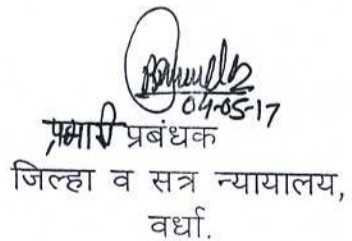 04-05-17
प्रभारी प्रबंधक
जिल्हा व सत्र न्यायालय,
वर्धा.